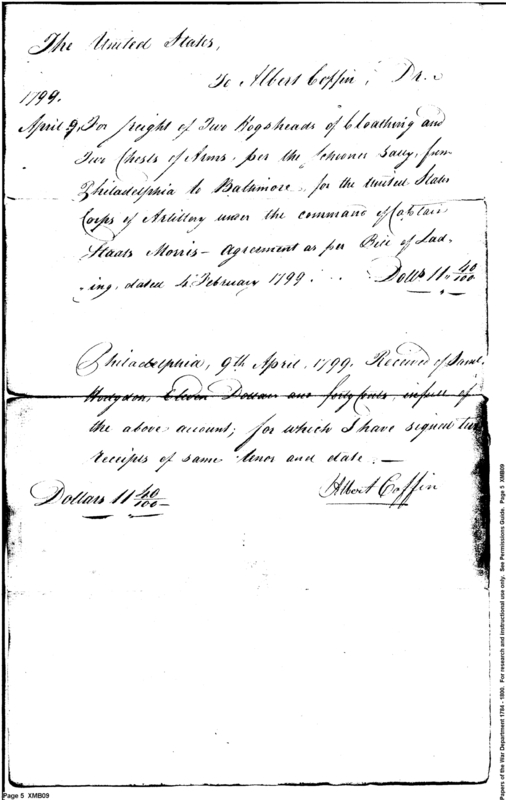 The United States,
To Albert Coffin, Dr.
1799.
April 9, For freight of Two Hogsheads of Cloathing and
Two Chests of Arms, per the Schooner Sally, from
Philadelphia to Baltimore, for the United States
Corps of Artillery under the command of Captain
Staats Morris - Agreement as per Bill of Lad-
-ing, dated 4 February 1799. Dolls 11 40/100
Philadelphia, 9th April, 1799. Received of Saml
Hodgdon, Eleven Dollars and forty Cents, in full of
the above account; for which I have signed two
receipts of same tenor and date.
Albert Coffin
Dollars 11 40/100
Page 5 XMB09
Papers of the War Department 1784 - 1800. For research and instructional use only. See Permissions Guide. Page 5 XMB09